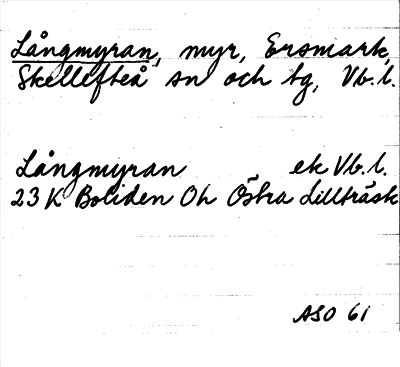 Långmyran, myr, Ersmark,
Skellefteå sn och tg, Vb. l.
Långmyran ek Vb. l.
23 K Boliden Oh Östra Lillträsk
ASO 61